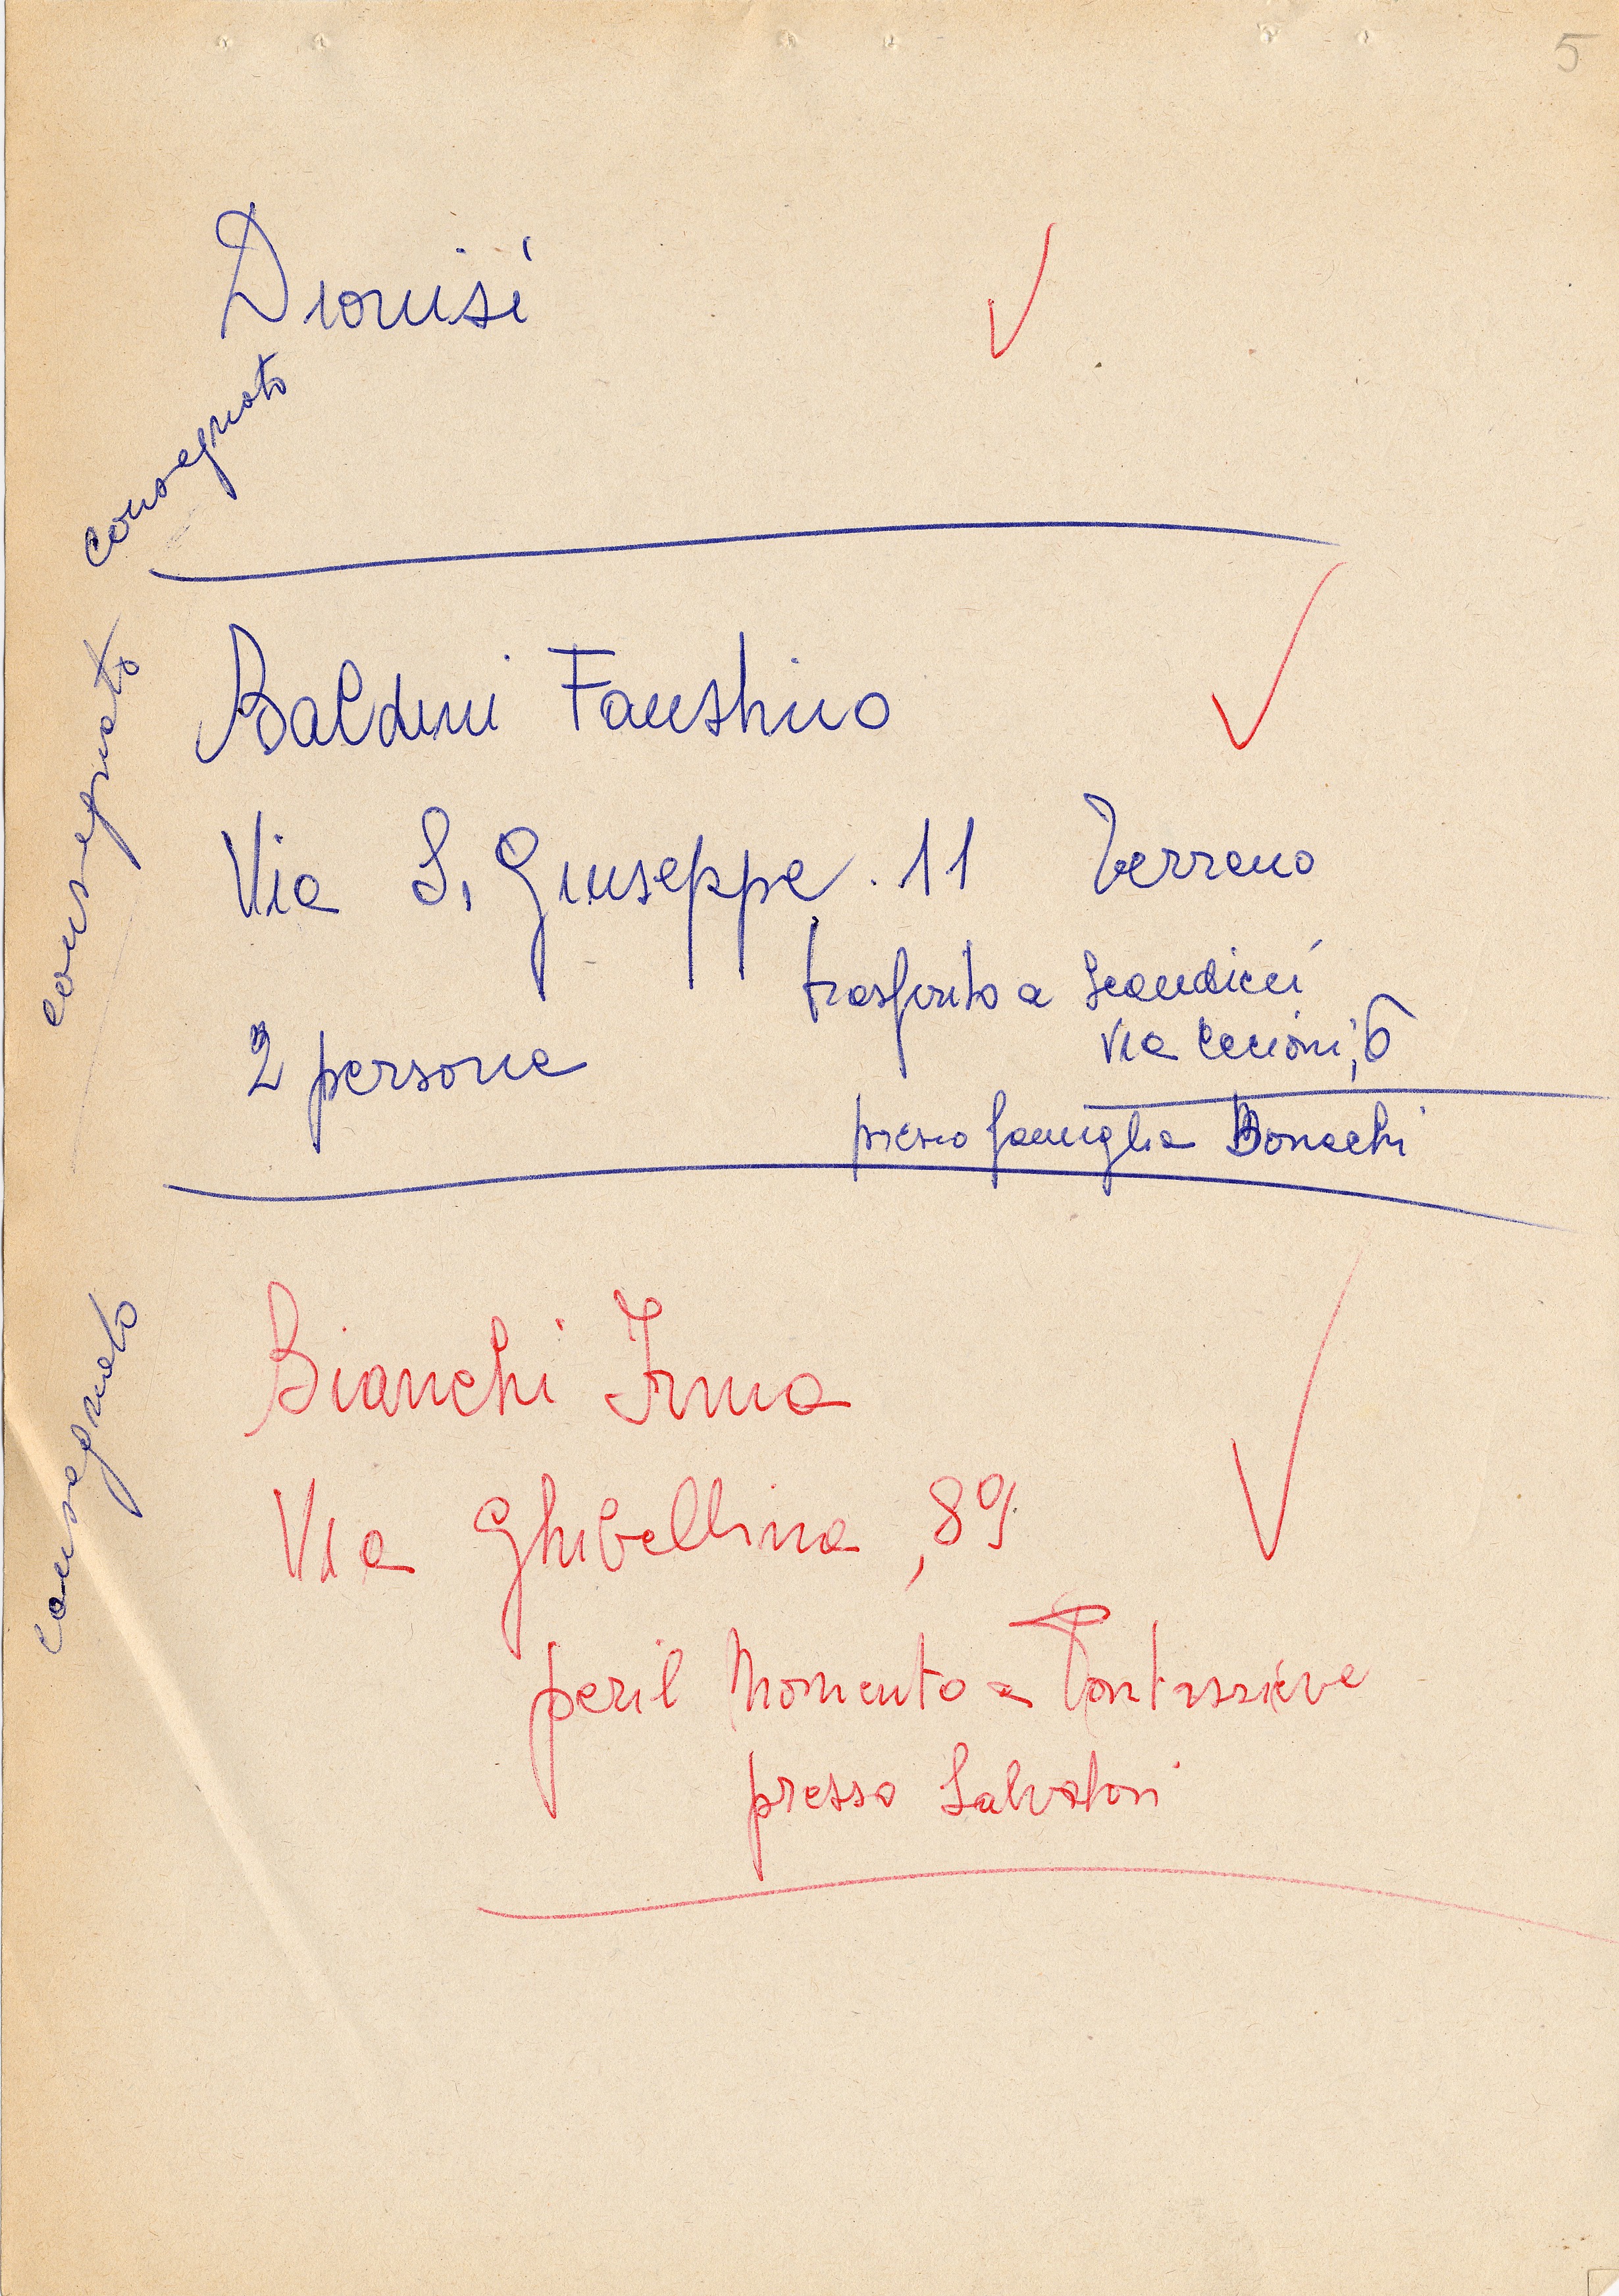 5
Dionisi
consegnato
Baldini Faustino
consegnato
Via S. Giuseppe. 11 Terreno
trasferito a Scandicci
2 persone
Via Cecioni, 6
presso famiglia Bonechi
Bianchi Irma
consegnato
Via Ghibellina, 89
per il Momento a Pontassieve
presso Salvatori